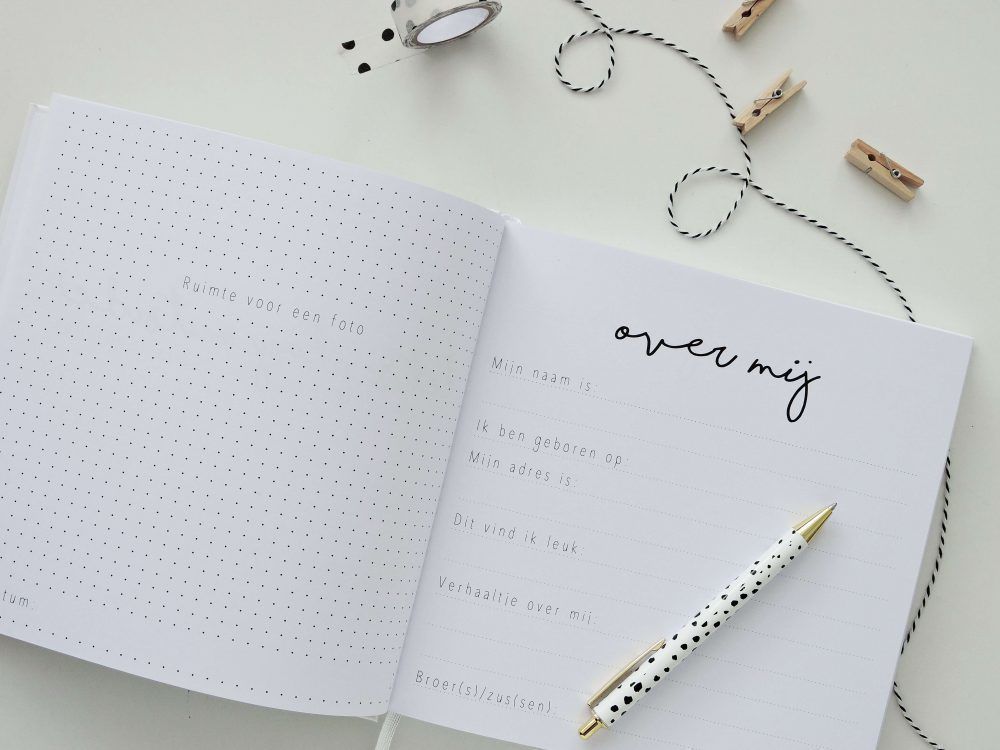 Ruimte voor een foto
tum:
over mij
Mijn naam is:
Ik ben geboren op:
Mijn adres is:
Dit vind ik leuk:
Verhaaltje over mij:
Broer(s)/zus(sen):